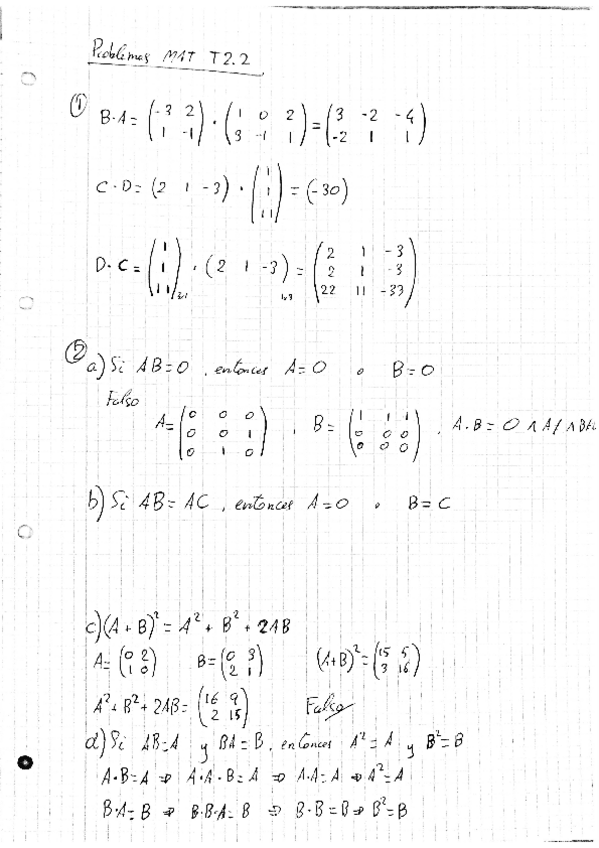 Problemas MAT T2.2
① B·A = (-3 2 / 1 -1) · (1 0 2 / 3 -1 1) = (3 -2 -4 / -2 1 1)
C·D = (2 1 -3) · (1 / 1 / 11) = (-30)
D·C = (1 / 1 / 11)3x1 · (2 1 -3)1x3 = (2 1 -3 / 2 1 -3 / 22 11 -33)
② a) Si AB=0, entonces A=0 o B=0
Falso
A = (0 0 0 / 0 0 1 / 0 1 0), B = (1 1 1 / 0 0 0 / 0 0 0), A·B = 0 ∧
b) Si AB = AC, entonces A=0 o B=C
c) (A+B)² = A² + B² + 2AB
A = (0 2 / 1 0) B = (0 3 / 2 1) (A+B)² = (15 5 / 3 16)
A²+B²+2AB = (16 9 / 2 15) Falso
d) Si AB=A y BA=B, entonces A²=A y B²=B
A·B=A ⇒ A·A·B=A ⇒ A·A=A ⇒ A²=A
B·A=B ⇒ B·B·A=B ⇒ B·B=B ⇒ B²=B